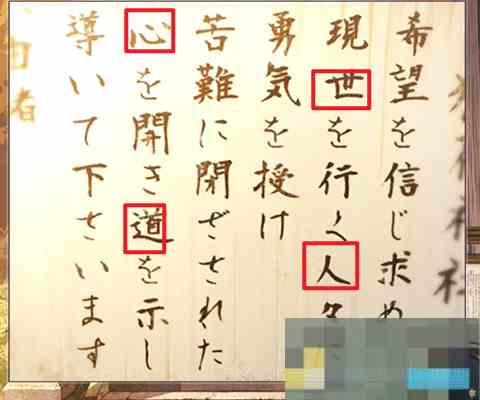 希望を信じ求め
現世を行く人
勇気を授け
苦難に閉ざされた
心を開き道を示し
導いて下さいます